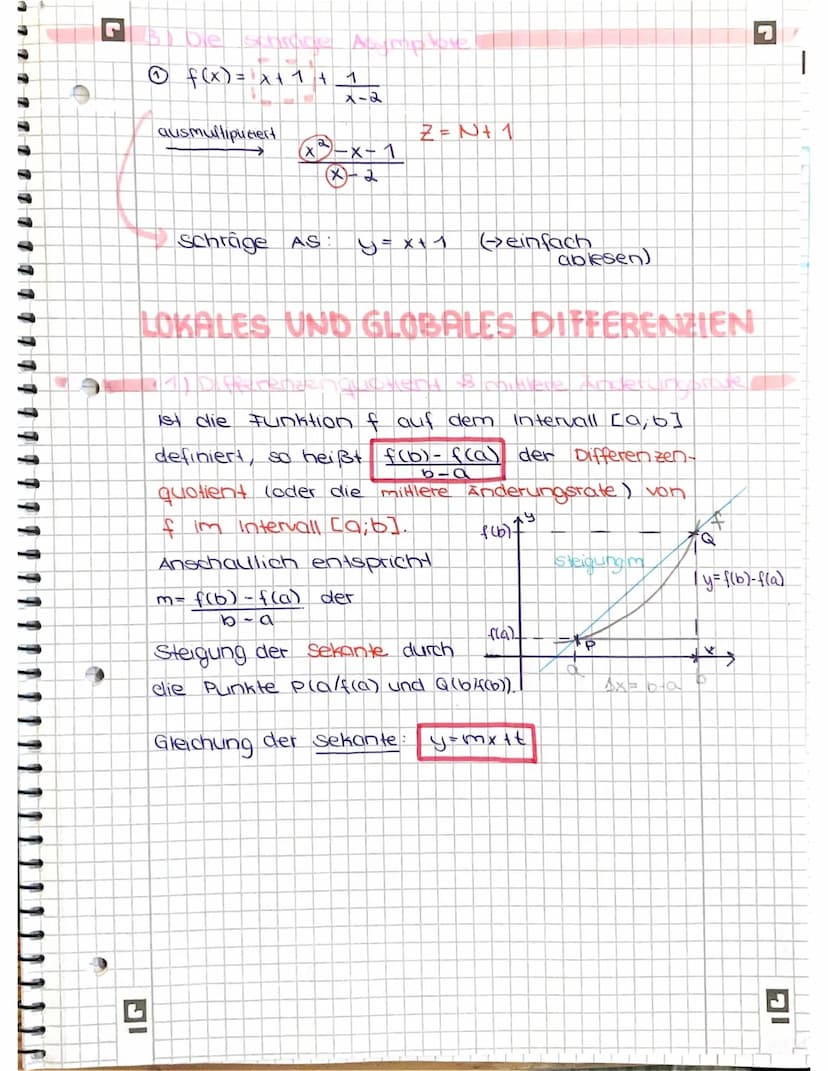 3) Die schräge Asymptote
① f(x) = x+1 + 1/(x-2)
ausmultipliziert → (x²-x-1)/(x-2) Z = N+1
schräge AS: y = x+1 (→einfach
ablesen)
LOKALES UND GLOBALES DIFFERENZIEN
1) Differenzenquotient & mittlere Änderungsrate
Ist die Funktion f auf dem Intervall [a,b]
definiert, so heißt (f(b)-f(a))/(b-a) der Differenzen-
quotient (oder die mittlere Änderungsrate) von
f im Intervall [a;b].
Anschaulich entspricht
m= (f(b)-f(a))/(b-a) der
Steigung der Sekante durch
die Punkte P(a/f(a) und Q(b/f(b)).
f(b) y f
Q
Steigung m
y=f(b)-f(a)
f(a) P
x
a b
Δx = b-a
Gleichung der Sekante: y=mx+t